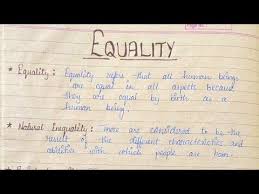 EQUALITY
* Equality : Equality refers that all human beings
are equal in all aspects because
they are equal by birth as a
human being.
* Natural Inequality : more are considered to be the
result of the different characteristics and
abilities with which people are born.